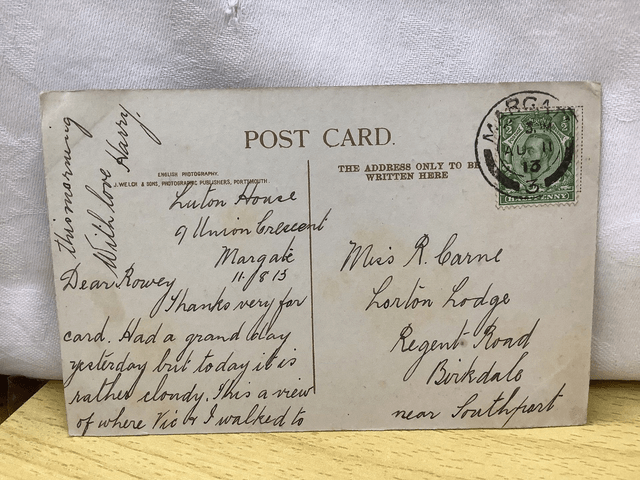 POST CARD.
ENGLISH PHOTOGRAPHY.
J. WELCH & SONS, PHOTOGRAPHIC PUBLISHERS, PORTSMOUTH.
THE ADDRESS ONLY TO BE
WRITTEN HERE
MARGA
AU 11
13
HALFPENNY
Luton House
9 Union Crescent
Margate
11.8.13
Dear Rowey
Thanks very for
card. Had a grand day
yesterday but today it is
rather cloudy. This a view
of where Vic & I walked to
this morning
With love Harry
Miss R. Carne
Lorton Lodge
Regent Road
Birkdale
near Southport